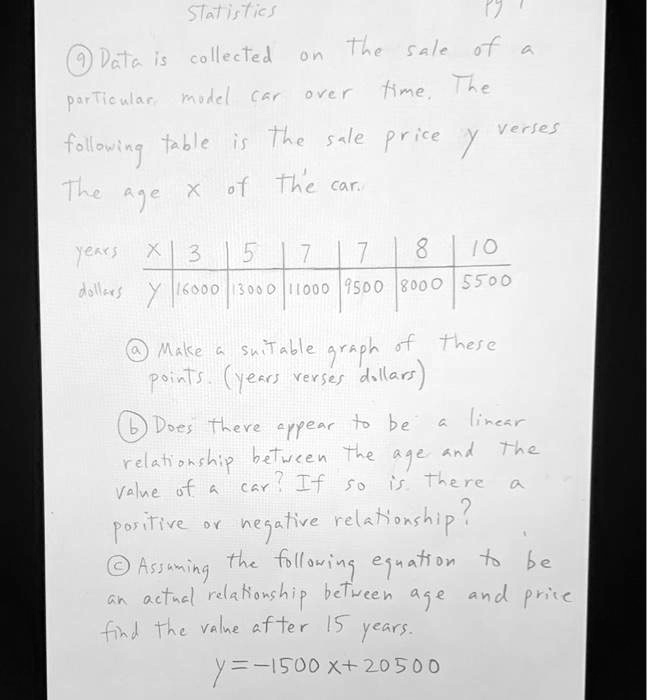 Statistics pg 1
⑨ Data is collected on the sale of a
particular model car over time. The
following table is the sale price y verses
The age x of the car.
years X 3 5 7 7 8 10
dollars Y 16000 13000 11000 9500 8000 5500
ⓐ Make a suitable graph of these
points. (years verses dollars)
ⓑ Does there appear to be a linear
relationship between the age and the
value of a car? If so is there a
positive or negative relationship?
ⓒ Assuming the following equation to be
an actual relationship between age and price
find the value after 15 years.
y = -1500 x + 20500